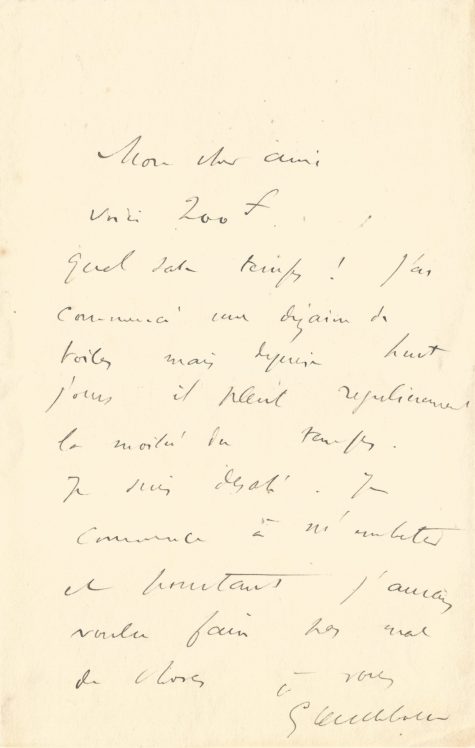 Mon cher ami
voici 200 f
Quel sale temps ! J'ai
commencé une dizaine de
toiles mais depuis huit
jours il pleut regulierement
la moitié du temps.
Je suis désolé. Je
commence à m'embeter
et pourtant j'aurais
voulu faire pas mal
de choses à vous
G Caillebotte